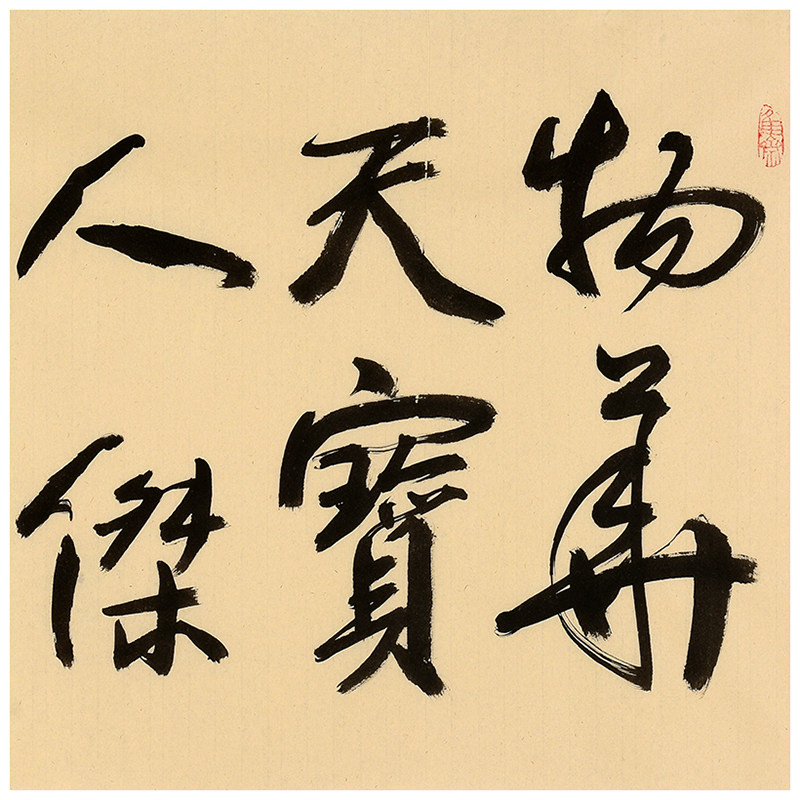 物華
天寶
人傑